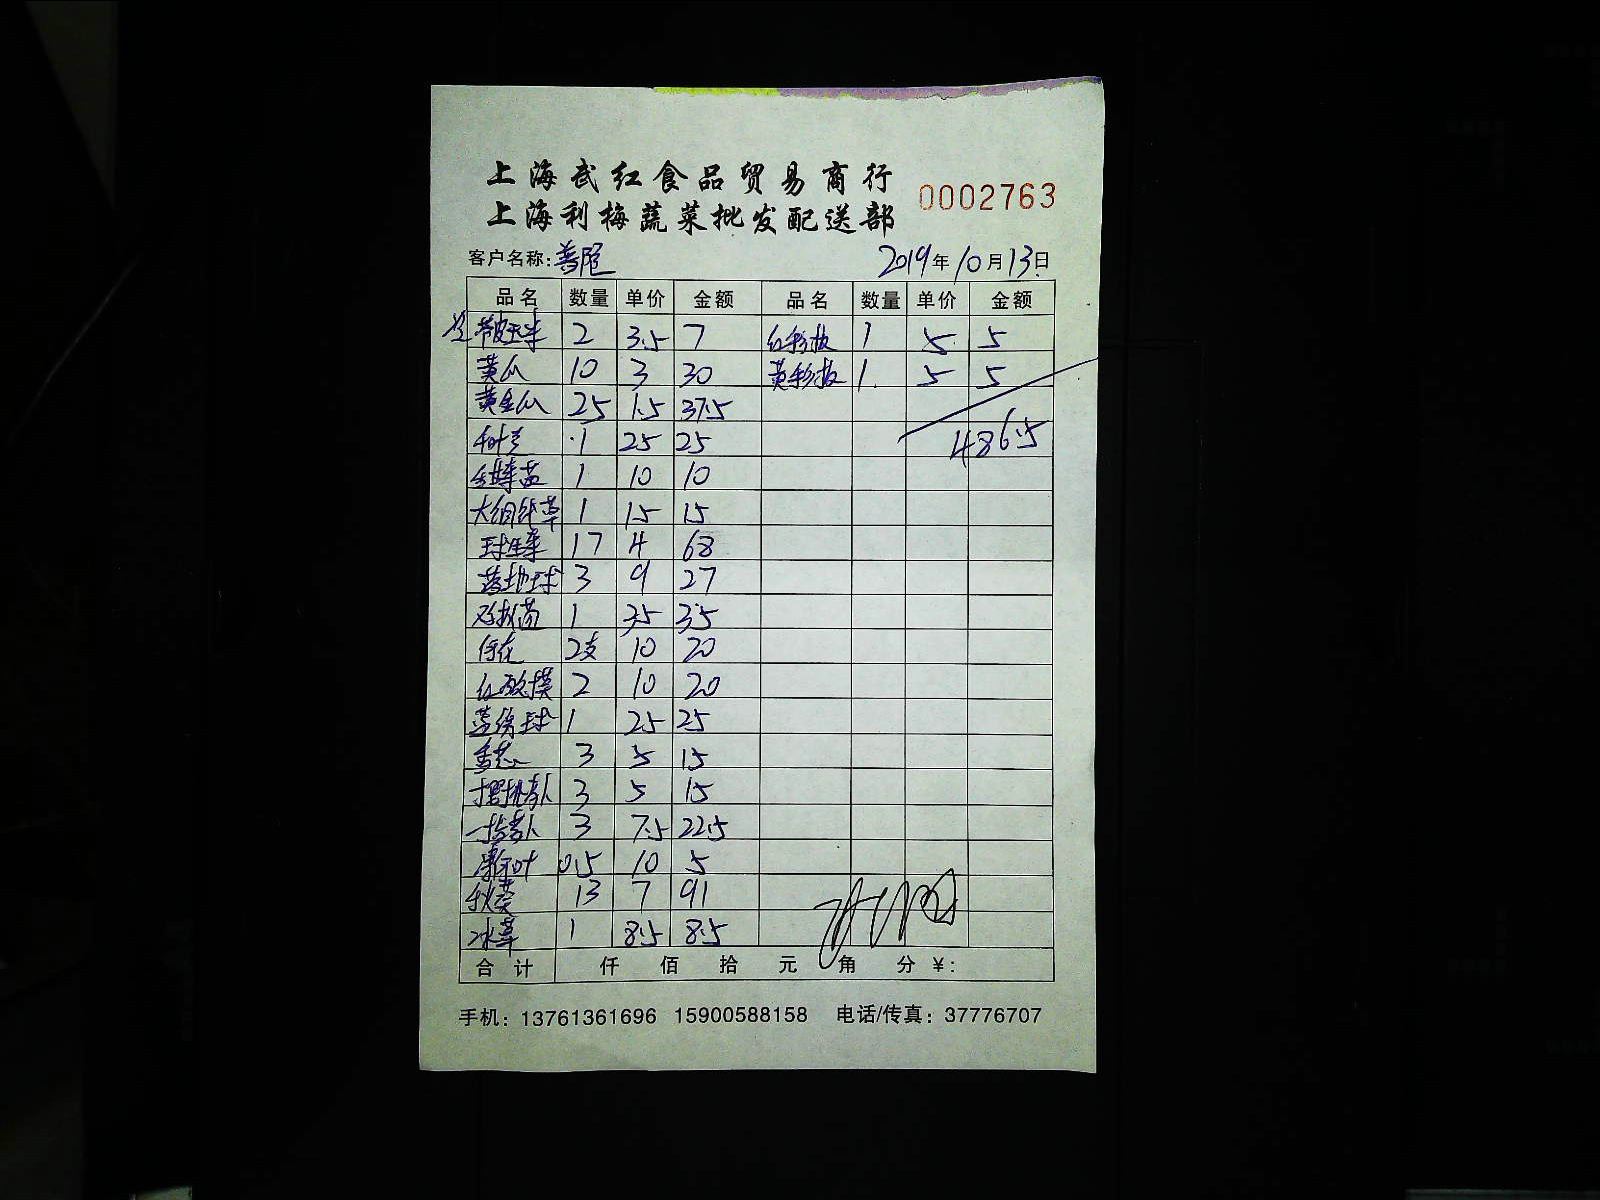 上海武红食品贸易商行
0002763
上海利梅蔬菜批发配送部
客户名称:
2019年10月13日
品名 数量 单价 金额 品名 数量 单价 金额
带皮玉米 2 3.5 7 红彩板 1 5 5
黄瓜 10 3 30 黄彩板 1 5 5
黄金瓜 25 1.5 37.5
1 25 25
486.5
1 10 10
1 15 15
球生菜 17 4 68
落地球 3 9 27
1 35 35
2支 10 20
2 10 20
1 25 25
香葱 3 5 15
3 5 15
3 7.5 22.5
叶 0.5 10 5
秋葵 13 7 91
冰草 1 8.5 8.5
合计 仟 佰 拾 元 角 分 ¥:
手机: 13761361696 15900588158 电话/传真: 37776707